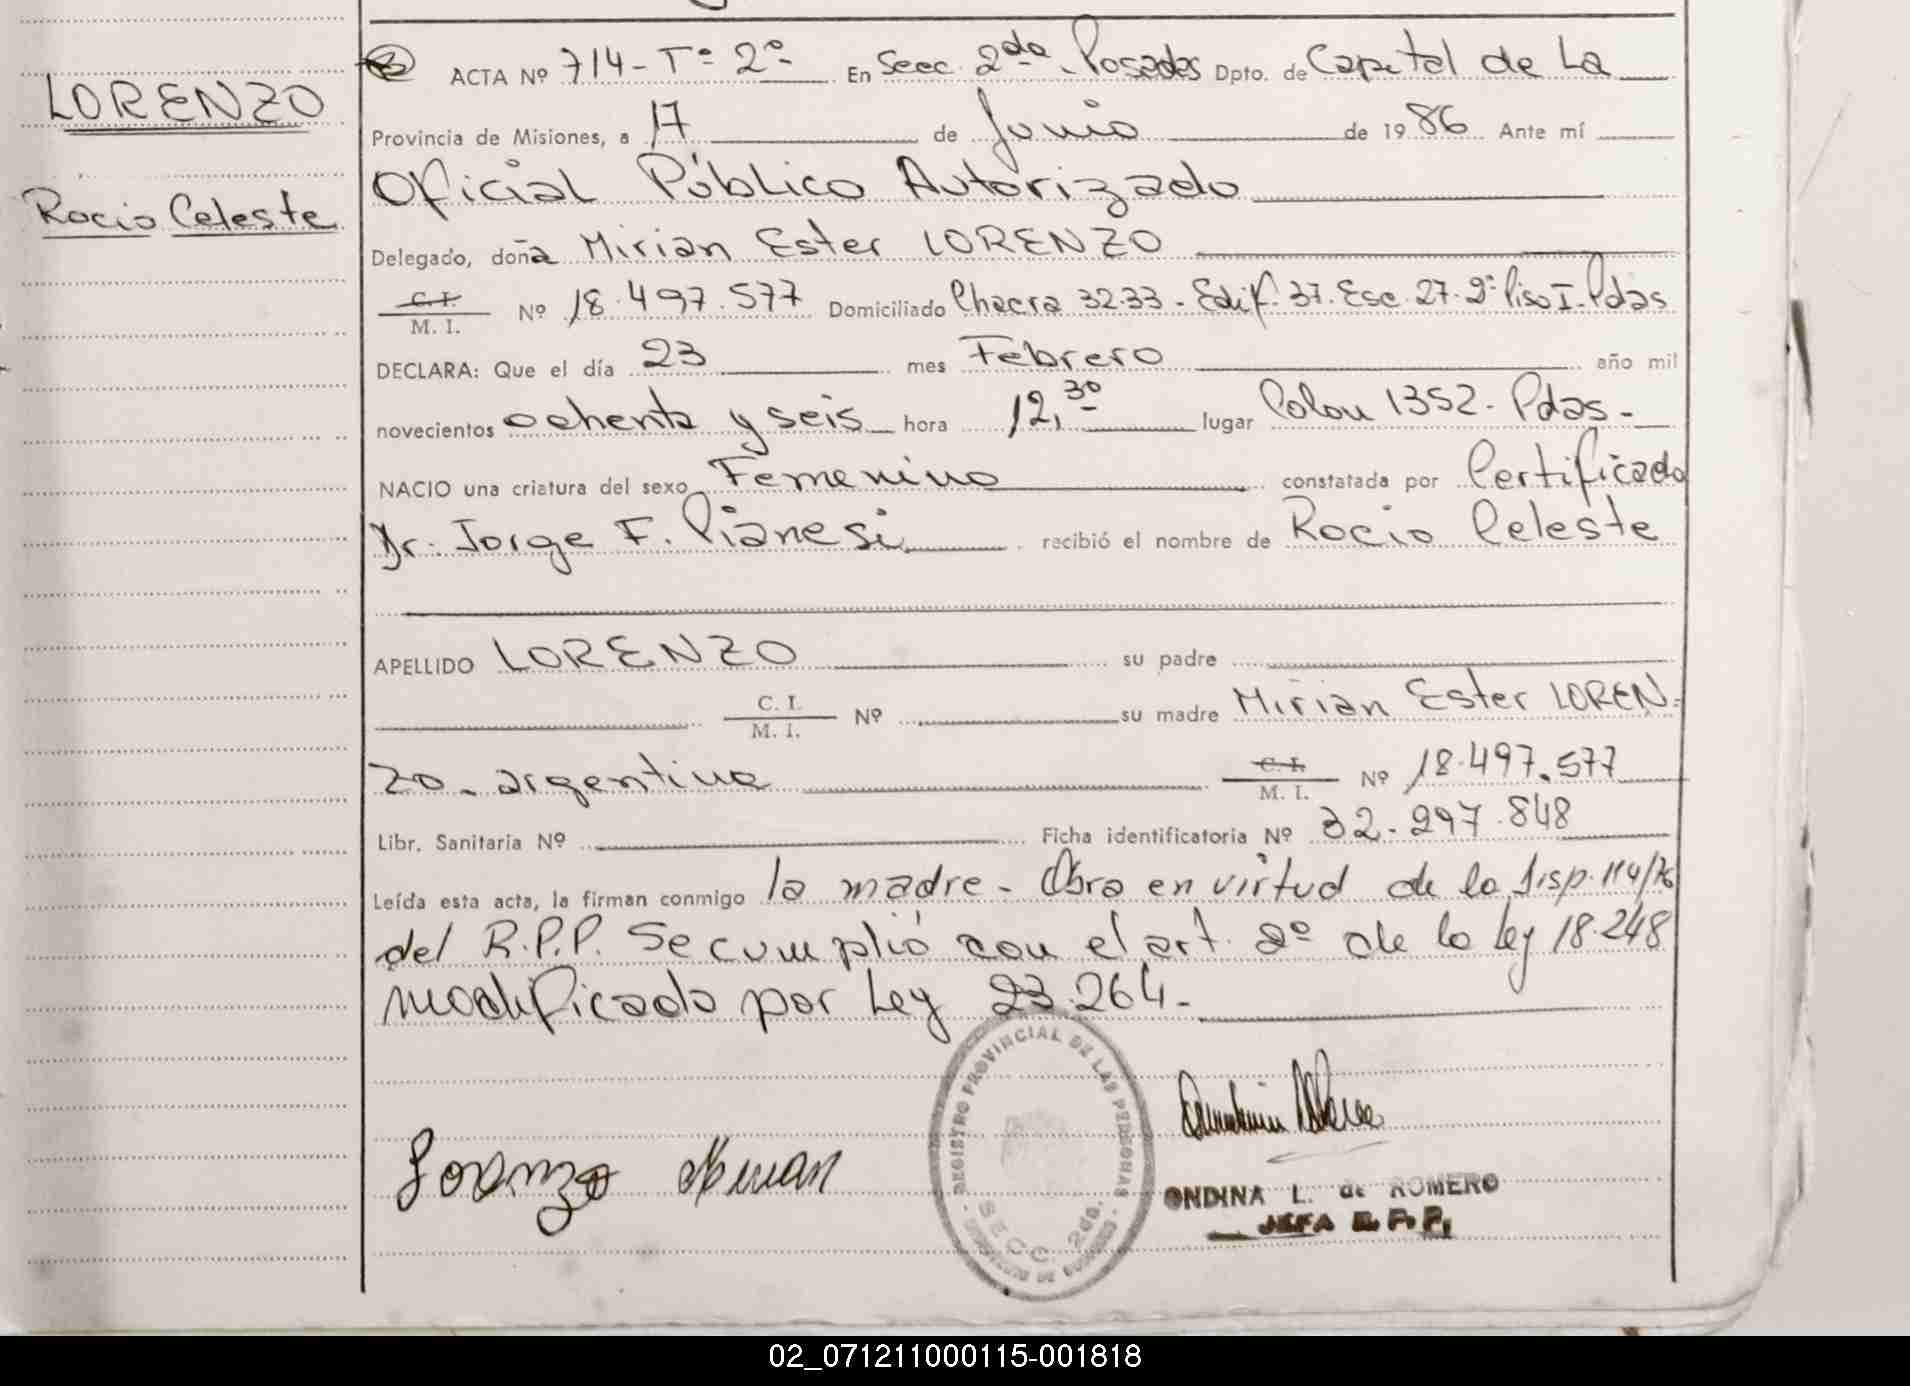 LORENZO
Rocio Celeste
ACTA Nº 714 - Tº 2º - En Secc. 2da. Posadas Dpto. de Capital de La
Provincia de Misiones, a 17 de Junio de 1986 Ante mí
Oficial Público Autorizado
Delegado, doña Mirian Ester LORENZO
C. I.
M. I. Nº 18.497.577 Domiciliado Chacra 3233 - Edif. 37. Esc. 27. 2º Piso I - Pdas
DECLARA: Que el día 23 mes Febrero año mil
novecientos ochenta y seis hora 12,30 lugar Colon 1352 - Pdas -
NACIO una criatura del sexo Femenino constatada por Certificado
Dr. Jorge F. Pianesi recibió el nombre de Rocio Celeste
APELLIDO LORENZO su padre
C. I.
M. I. Nº su madre Mirian Ester LOREN-
ZO - argentina C. I.
M. I. Nº 18.497.577
Libr. Sanitaria Nº Ficha identificatoria Nº 32.297.848
Leída esta acta, la firman conmigo la madre - Obra en virtud de la Disp. 114/76
del R.P.P. Se cumplió con el art. 2º de la Ley 18.248
modificado por Ley 23.264 -
REGISTRO PROVINCIAL DE LAS PERSONAS
SECC. 2da.
MINISTERIO DE GOBIERNO
Lorenzo Mirian
ONDINA L. de ROMERO
JEFA R. P. P.
02_071211000115-001818